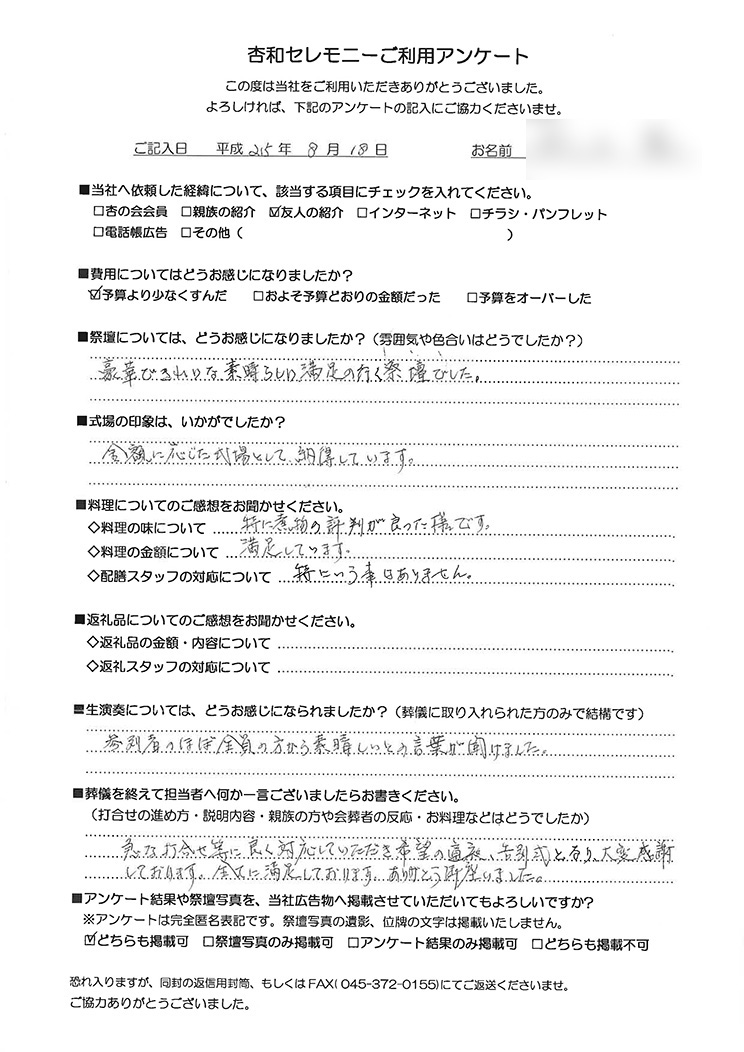 杏和セレモニーご利用アンケート
この度は当社をご利用いただきありがとうございました。
よろしければ、下記のアンケートの記入にご協力くださいませ。
ご記入日 平成25年 8月18日 お名前
■当社へ依頼した経緯について、該当する項目にチェックを入れてください。
□杏の会会員 □親族の紹介 ☑友人の紹介 □インターネット □チラシ・パンフレット
□電話帳広告 □その他（ ）
■費用についてはどうお感じになりましたか？
☑予算より少なくすんだ □およそ予算どおりの金額だった □予算をオーバーした
■祭壇については、どうお感じになりましたか？（雰囲気や色合いはどうでしたか？）
豪華できれいな素晴らしい満足の行く祭壇でした。
■式場の印象は、いかがでしたか？
金額に応じた式場として、納得しています。
■料理についてのご感想をお聞かせください。
◇料理の味について 特に煮物の評判が良った様です。
◇料理の金額について 満足しています。
◇配膳スタッフの対応について 特にいう事はありません。
■返礼品についてのご感想をお聞かせください。
◇返礼品の金額・内容について
◇返礼スタッフの対応について
■生演奏については、どうお感じになられましたか？（葬儀に取り入れられた方のみで結構です）
参列者のほぼ全員の方から素晴しいとの言葉が聞けました。
■葬儀を終えて担当者へ何か一言ございましたらお書きください。
（打合せの進め方・説明内容・親族の方や会葬者の反応・お料理などはどうでしたか）
急な打合せ等に良く対応していただき希望の通夜、告別式となり、大変感謝
しております。全てに満足しております。ありがとう御座いました。
■アンケート結果や祭壇写真を、当社広告物へ掲載させていただいてもよろしいですか？
※アンケートは完全匿名表記です。祭壇写真の遺影、位牌の文字は掲載いたしません。
☑どちらも掲載可 □祭壇写真のみ掲載可 □アンケート結果のみ掲載可 □どちらも掲載不可
恐れ入りますが、同封の返信用封筒、もしくはFAX(045-372-0155)にてご返送くださいませ。
ご協力ありがとうございました。